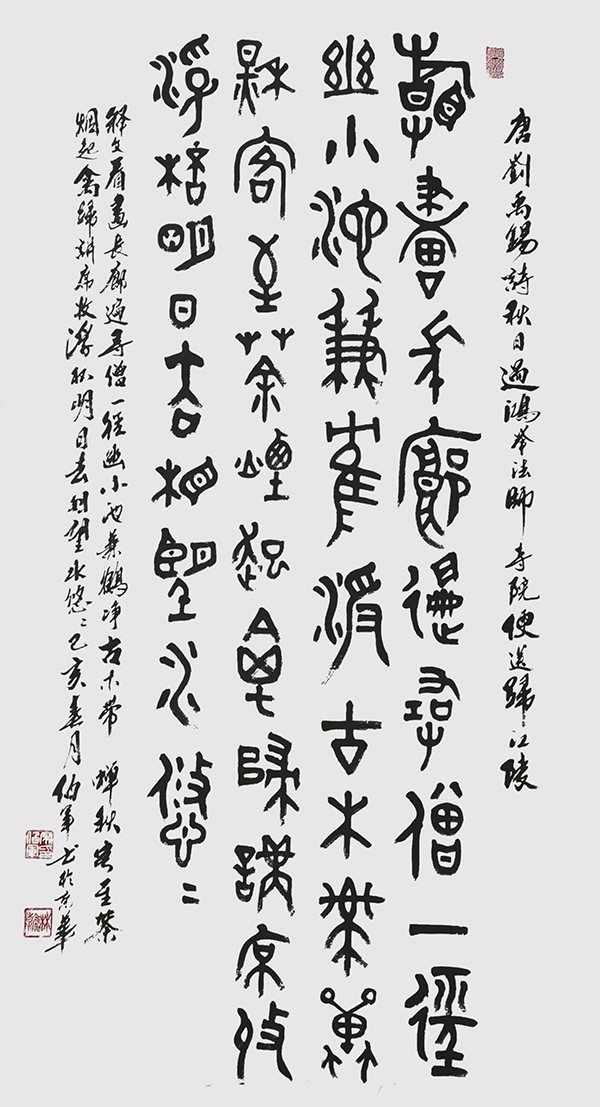 唐劉禹錫詩秋日過鴻舉法師寺院便送歸江陵
看畫長廊遍尋僧一徑
幽小池兼隺淨古木帶蟬
秋客至茶煙起禽歸講席收
浮杯明日去相望水悠〻
释文看畫長廊遍尋僧一徑幽小池兼鶴净古木帶蟬秋客至茶
烟起禽歸講席收浮杯明日去相望水悠〻己亥春月伯軍书於京華